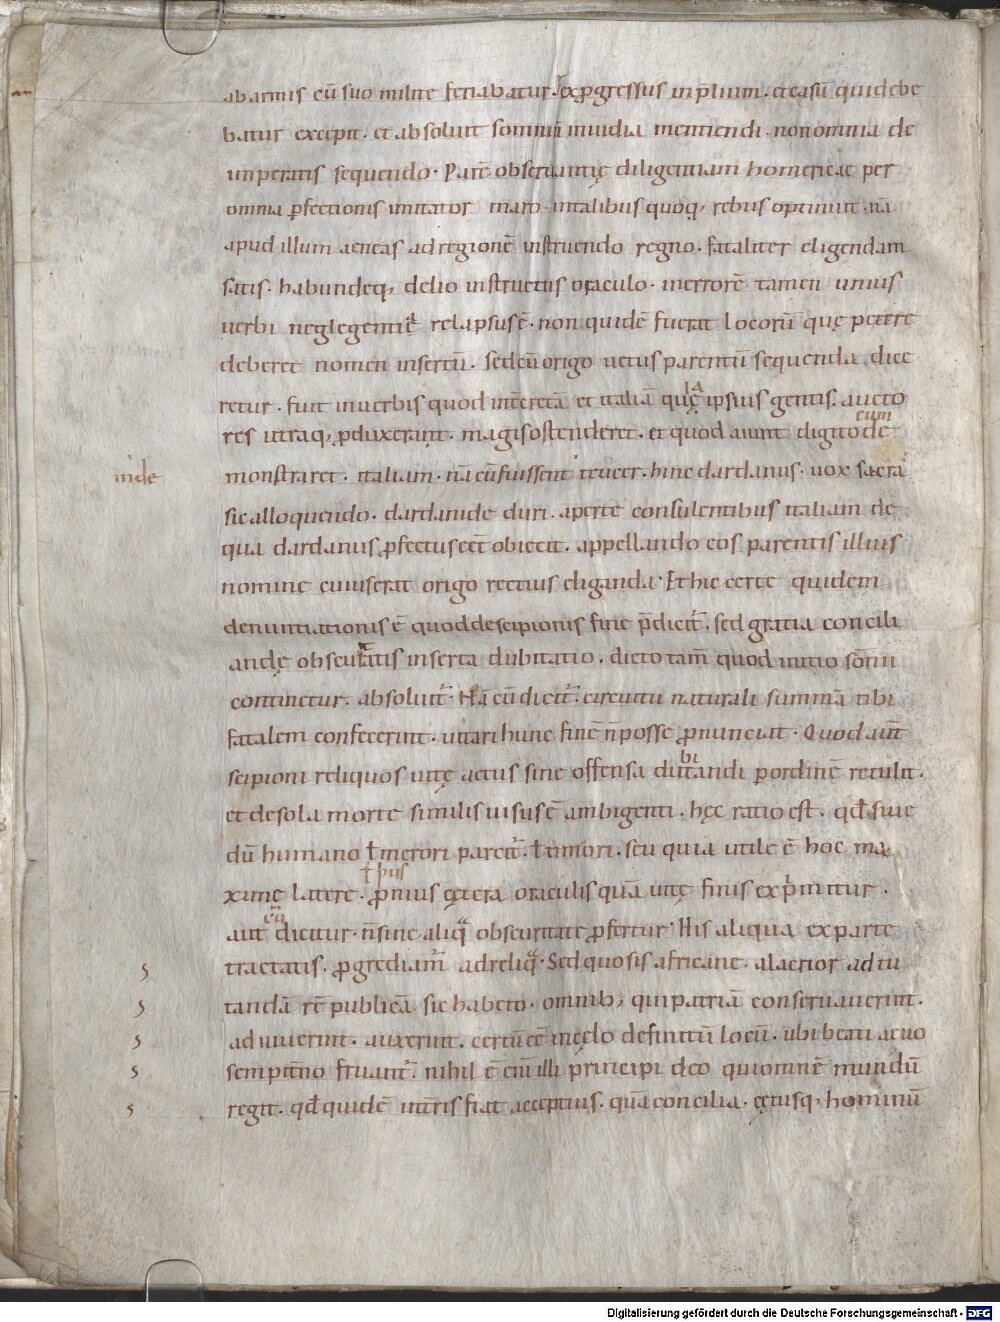 abarmis cū suo milite feriabatur. exp̄gressus inp̄lium. et casū qui debe
batur excepit. et absoluit somniū inuidia mentiendi. non omnia de
imperatis sequendo. Parē obseruantię diligentiam homericae per
omnia p̄fectionis imitator maro. intalibus quoq, rebus optinuit. nā
apud illum aeneas ad regionē instruendo regno. fataliter eligendam
satis. habundeq, delio instructus oraculo. in errorē tamen unius
uerbi neglegentię relapsus ē. non quidē fuerat locorū quę petere
deberet nomen insertū. sed cū origo uetus parentū sequenda dice
retur. fuit in uerbis quod int̄cretā et italiā quę ipsius gentis. aucto
la
res utraq, p̄duxerunt. magis ostenderet. et quod aiunt digito de
eum
monstraret. italiam. nā cū fuissent teucer. hinc dardanus. uox sacra
inde
sic alloquendo. dardanide duri. aperte consulentibus italiam de
qua dardanus p̄fectus eēt obiecit. appellando eos parentis illius
nomine cuius erat origo rectius eliganda. Et hic certe quidem
denuntiationis ē quod de scipionis fine p̄dicit̄. sed gratia concili
andę obscuritatis inserta dubitatio. dicto tam̄ quod initio som̄
continetur. absoluit̄. Nā cū dicit̄ circuitu naturali summā tibi
fatalem confecerint. uitari hunc finē n̄ posse p̄nunciat. Quod aūt
scipioni reliquos uitę actus sine offensa dutandi p̄ ordinē retulit.
bi
et de sola morte similis uisus ē ambigenti. hęc ratio est. qđ siue
dū humano ł merori parcit̄. ł timori. seu quia utile ē hoc ma
xime latere. p̄nius cętera oraculis quā uitę finis exp̄mitur.
ł p̄us
aut dicitur. n̄ sine aliq̄ obscuritate p̄fertur. His aliqua ex parte
cū
tractatis. p̄grediam̄ ad reliq̄. Sed quo sis africane. alacrior ad tu
tandā rē publicā sic habeto. omnib, qui patriā conseruauerint.
adiuuerint. auxerint. certū eē in cęlo definitū locū. ubi beati aeuo
sempit̄no fruant̄. nihil ē enī illi principi deo qui omnē mundū
regit. qđ quidē int̄ris fiat acceptius. quā concilia. cętusq, hominū
Digitalisierung gefördert durch die Deutsche Forschungsgemeinschaft - DFG